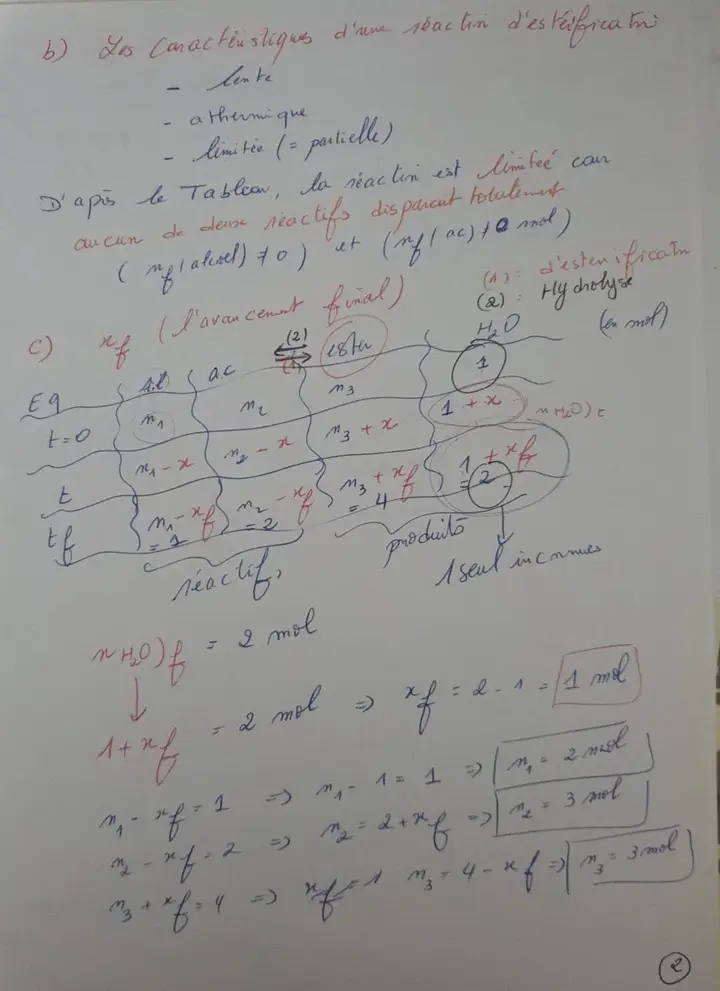 b) Les Caractéristiques d'une réaction d'estérification
- lente
- athermique
- limitée (= partielle)
D'après le Tableau, la réaction est limitée car
aucun de deux réactifs disparait totalement
( nf(alcool) ≠ 0 ) et (nf(ac) ≠ 0 mol)
(1) : d'esterification
(2) : Hydrolyse
c) xf (l'avancement final)
Eq Al ac (2) (1) ester H2O (en mol)
t=0 n1 n2 n3 1
t n1 - x n2 - x n3 + x 1 + x nH2O)t
tf n1 - xf = 1 n2 - xf = 2 n3 + xf = 4 1 + xf = 2
réactifs produits 1 seul inconnues
nH2O)f = 2 mol
↓
1 + xf = 2 mol => xf = 2 - 1 = 1 mol
n1 - xf = 1 => n1 - 1 = 1 => n1 = 2 mol
n2 - xf = 2 => n2 = 2 + xf => n2 = 3 mol
n3 + xf = 4 => xf = 1 n3 = 4 - xf => n3 = 3 mol
2